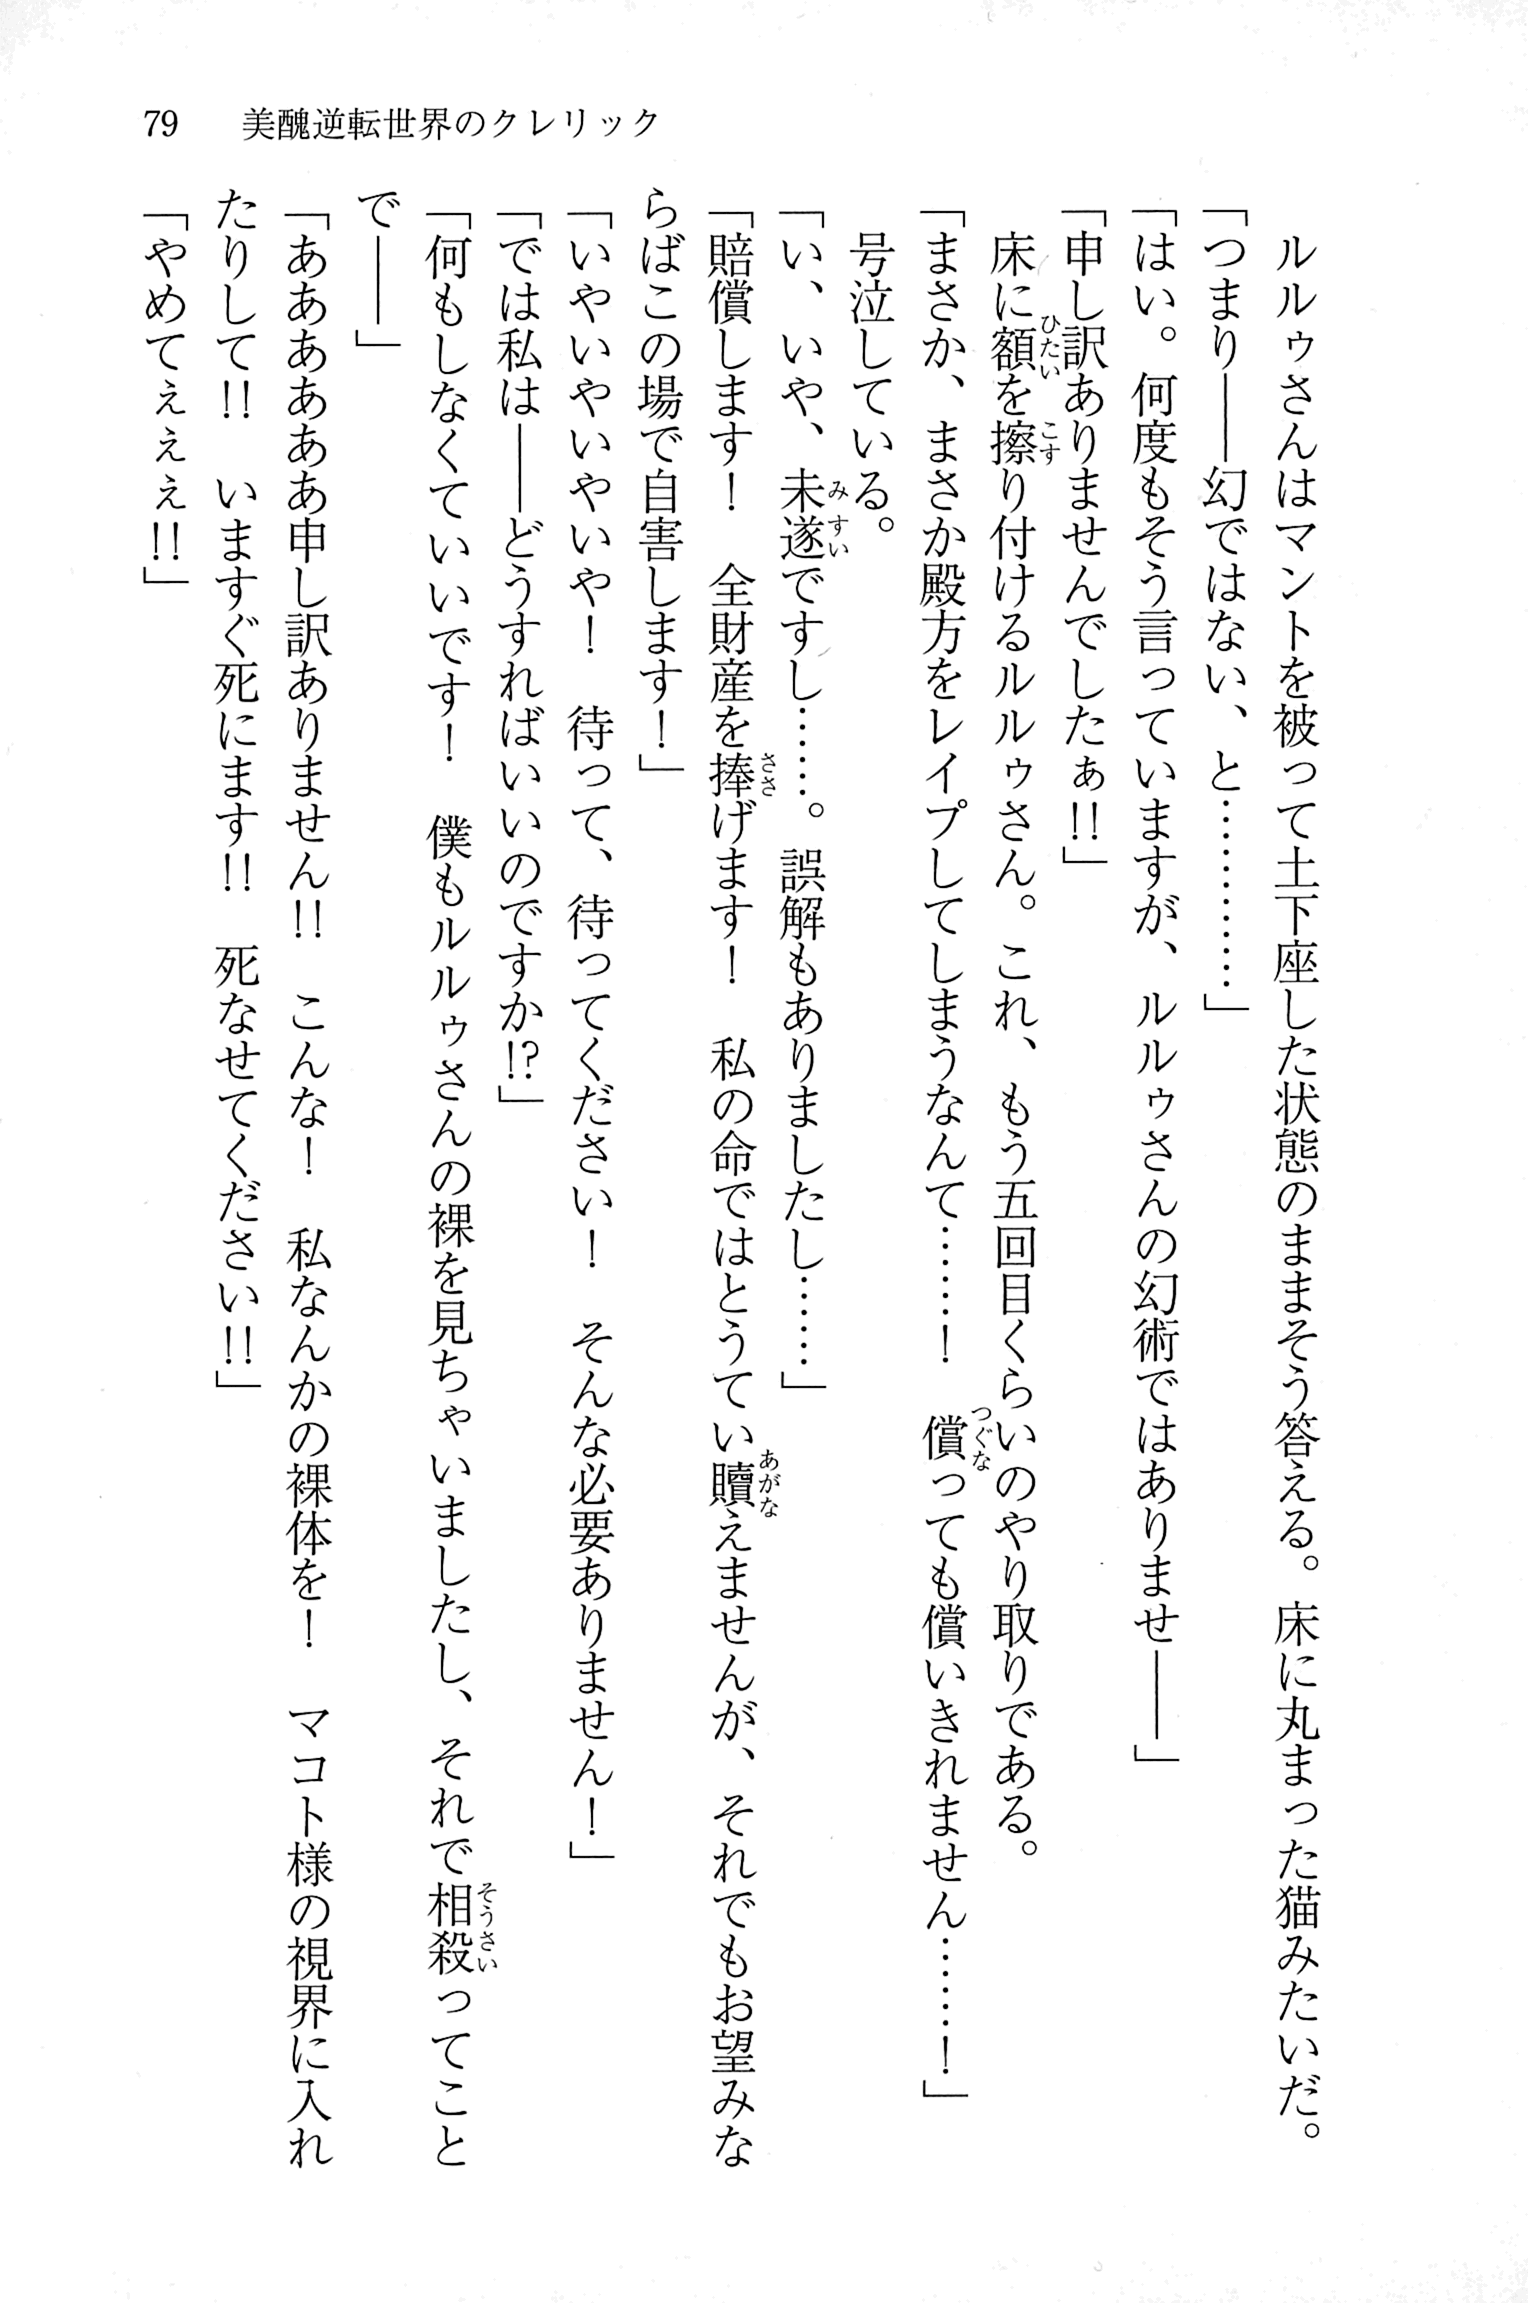 79　美醜逆転世界のクレリック
　ルルゥさんはマントを被って土下座した状態のままそう答える。床に丸まった猫みたいだ。
「つまり――幻ではない、と…………」
「はい。何度もそう言っていますが、ルルゥさんの幻術ではありませ――」
「申し訳ありませんでしたぁ!!」
　床に額を擦り付けるルルゥさん。これ、もう五回目くらいのやり取りである。
「まさか、まさか殿方をレイプしてしまうなんて……！　償っても償いきれません……！」
　号泣している。
「い、いや、未遂ですし……。誤解もありましたし……」
「賠償します！　全財産を捧げます！　私の命ではとうてい贖えませんが、それでもお望みな
らばこの場で自害します！」
「いやいやいやいや！　待って、待ってください！　そんな必要ありません！」
「では私は――どうすればいいのですか!?」
「何もしなくていいです！　僕もルルゥさんの裸を見ちゃいましたし、それで相殺ってこと
で――」
「ああああああ申し訳ありません!!　こんな！　私なんかの裸体を！　マコト様の視界に入れ
たりして!!　いますぐ死にます!!　死なせてください!!」
「やめてぇぇぇ!!」